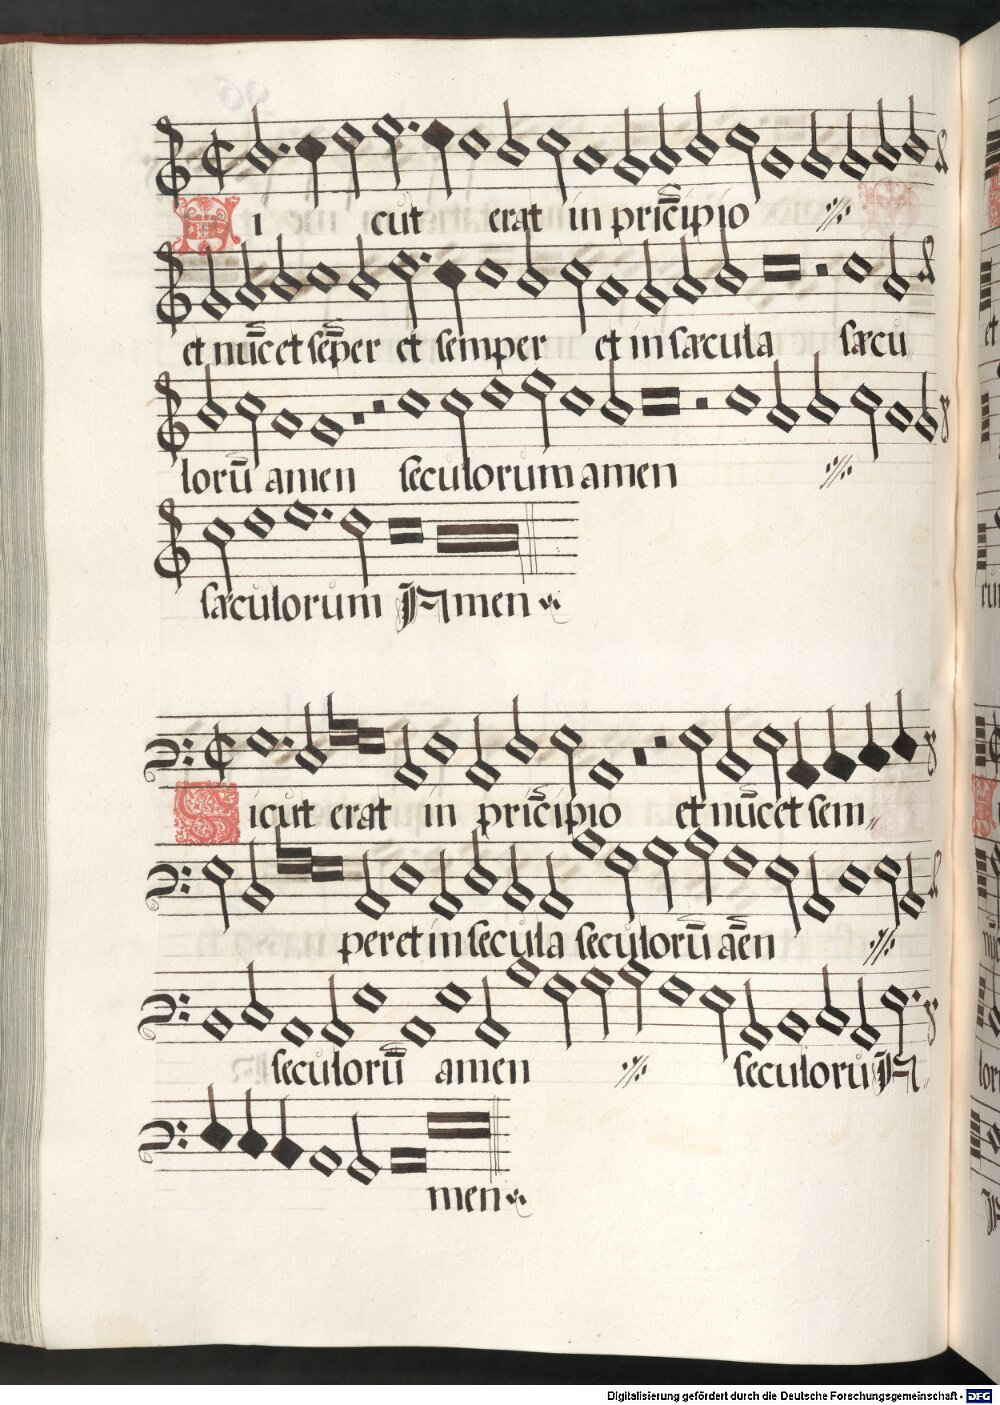 Sicut erat in pric̄ipio ·//·
et nūc et sēper et semper et in sæcula sæcu„
lorū amen seculorum amen ·//·
sæculorum Amen
Sicut erat in pric̄ipio et nūc et sem„
per et in secula seculorū aēn ·//·
seculorū amen ·//· seculoru A„
men
Digitalisierung gefördert durch die Deutsche Forschungsgemeinschaft - DFG